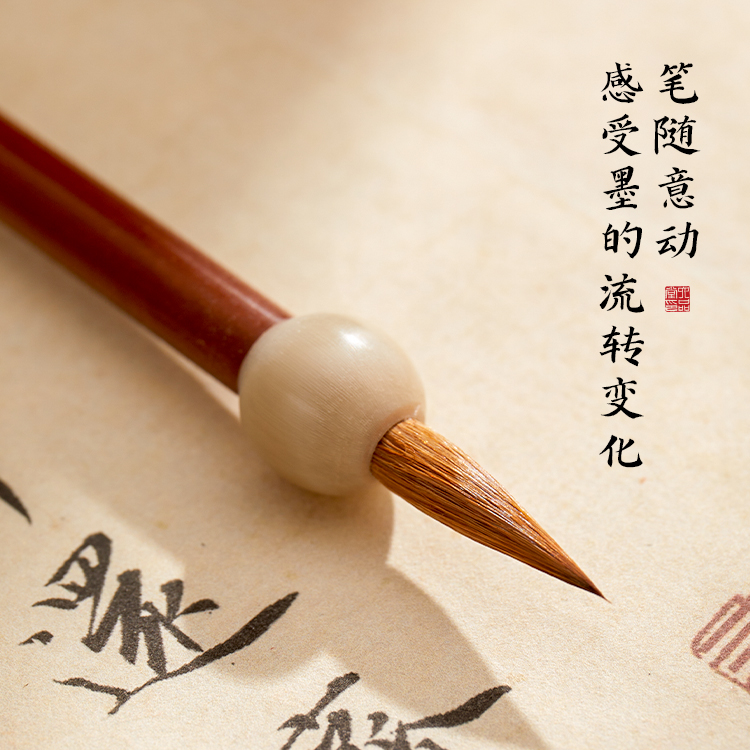 笔随意动
感受墨的流转变化